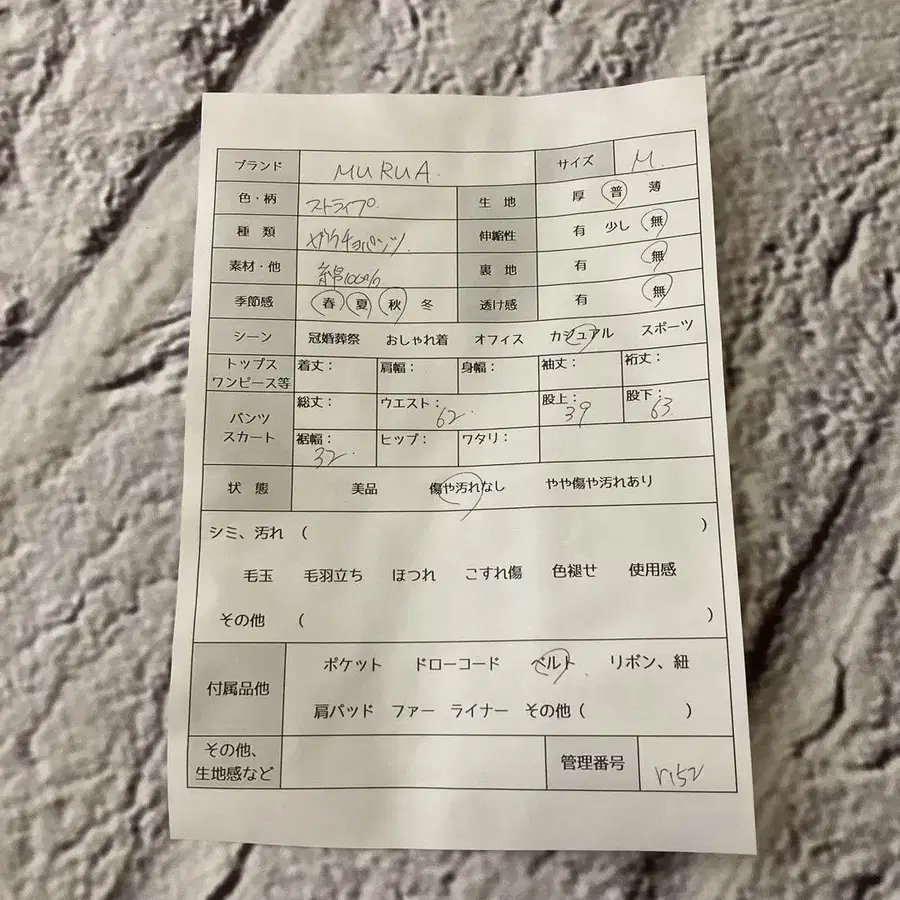 ブランド MURUA. サイズ M.
色・柄 ストライプ. 生地 厚 普 薄
種類 ガウチョパンツ. 伸縮性 有 少し 無
素材・他 綿100% 裏地 有 無
季節感 春 夏 秋 冬 透け感 有 無
シーン 冠婚葬祭 おしゃれ着 オフィス カジュアル スポーツ
トップス ワンピース等 着丈: 肩幅: 身幅: 袖丈: 裄丈:
パンツ スカート 総丈: ウエスト: 62. 股上: 39 股下: 63
裾幅: 32. ヒップ: ワタリ:
状態 美品 傷や汚れなし やや傷や汚れあり
シミ、汚れ ( )
毛玉 毛羽立ち ほつれ こすれ傷 色褪せ 使用感
その他 ( )
付属品他 ポケット ドローコード ベルト リボン、紐
肩パッド ファー ライナー その他 ( )
その他、生地感など 管理番号 r152